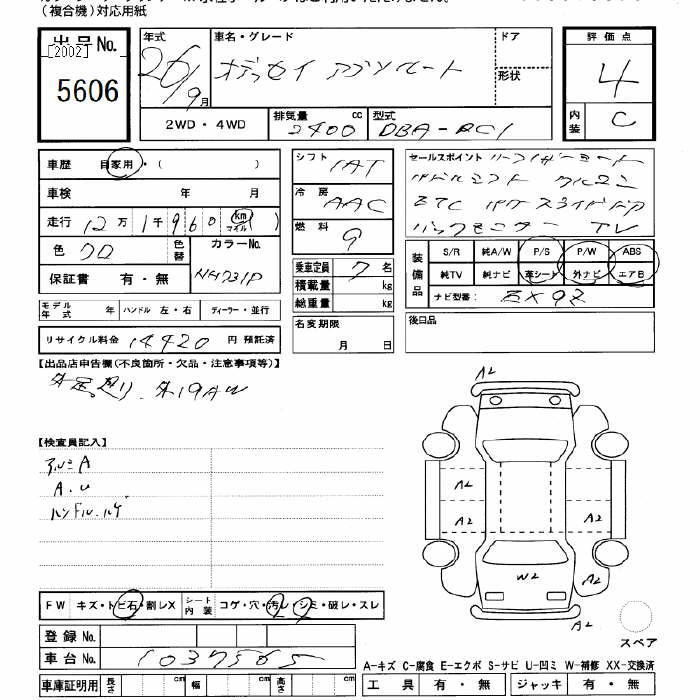 (複合機)対応用紙
出品No.
[2002]
5606
年式
26/9月
車名・グレード
オデッセイ アブソルート
ドア
形状
評価点
4
内装
C
2WD・4WD
排気量 2400 cc
型式 DBA-RC1
車歴 自家用・( )
車検 年 月
走行 12万1千960 km マイル ( )
色 クロ
色替
カラーNo.
NH731P
保証書 有・無
シフト IAT
冷房 AAC
燃料 G
乗車定員 7 名
積載量 kg
総重量 kg
セールスポイント
ETC パワースライドドア
バックモニター TV
装備品
S/R 純A/W P/S P/W ABS
純TV 純ナビ 革シート 外ナビ エアB
ナビ型番:
モデル年式 年 ハンドル 左・右 ディーラー・並行
リサイクル料金 14420 円 預託済
名変期限
月 日
後日品
【出品店申告欄(不良箇所・欠品・注意事項等)】
外19AW
【検査員記入】
アルミA
A.U
ハンドル.ハゲ
A2
A2
A2
A2
A2
W2
A2
A2
FW キズ・トビ石・割レX シート内装 コゲ・穴・汚レ・シミ・破レ・スレ
登録No.
車台No. 1037565
スペア
A-キズ C-腐食 E-エクボ S-サビ U-凹ミ W-補修 XX-交換済
車庫証明用 長さ cm 幅 cm 高さ cm
工具 有・無 ジャッキ 有・無